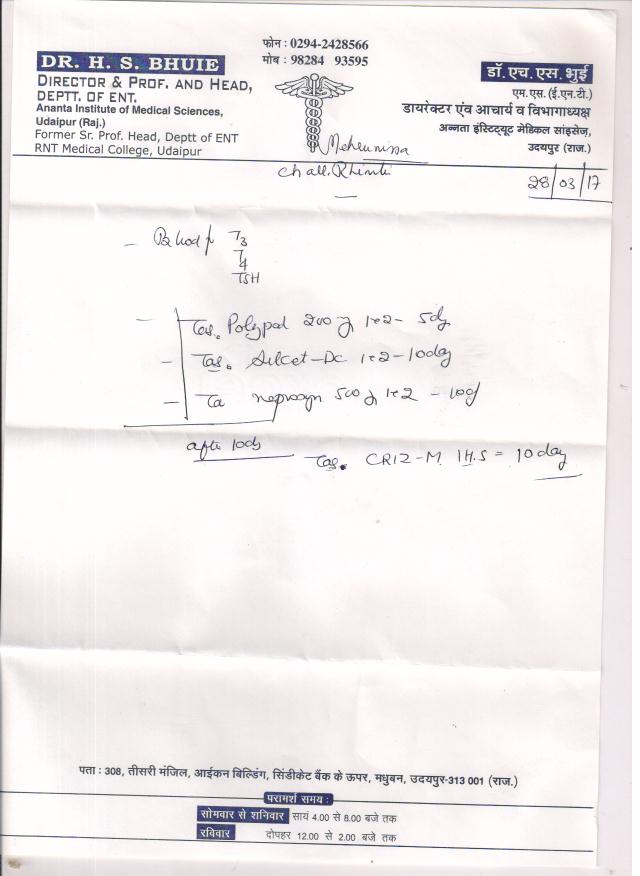 फोन : 0294-2428566
मोब : 98284 93595
DR. H. S. BHUIE
DIRECTOR & PROF. AND HEAD,
DEPTT. OF ENT.
Ananta Institute of Medical Sciences,
Udaipur (Raj.)
Former Sr. Prof. Head, Deptt of ENT
RNT Medical College, Udaipur
डॉ. एच. एस. भुई
एम.एस. (ई.एन.टी.)
डायरेक्टर एंव आचार्य व विभागाध्यक्ष
अन्नता इंस्टिट्यूट मेडिकल सांइसेज,
उदयपुर (राज.)
Mehrunnisa
28/03/17
T3
T4
TSH
Polypod 200 1x2 - 5dy
Tab. -DC 1x2 - 10day
naprosyn 500 1x2 - 10d
after 10ds
Tab. CRIZ-M 1H.S = 10 day
पता : 308, तीसरी मंजिल, आईकन बिल्डिंग, सिंडीकेट बैंक के ऊपर, मधुबन, उदयपुर-313 001 (राज.)
परामर्श समय :
सोमवार से शनिवार सायं 4.00 से 8.00 बजे तक
रविवार दोपहर 12.00 से 2.00 बजे तक